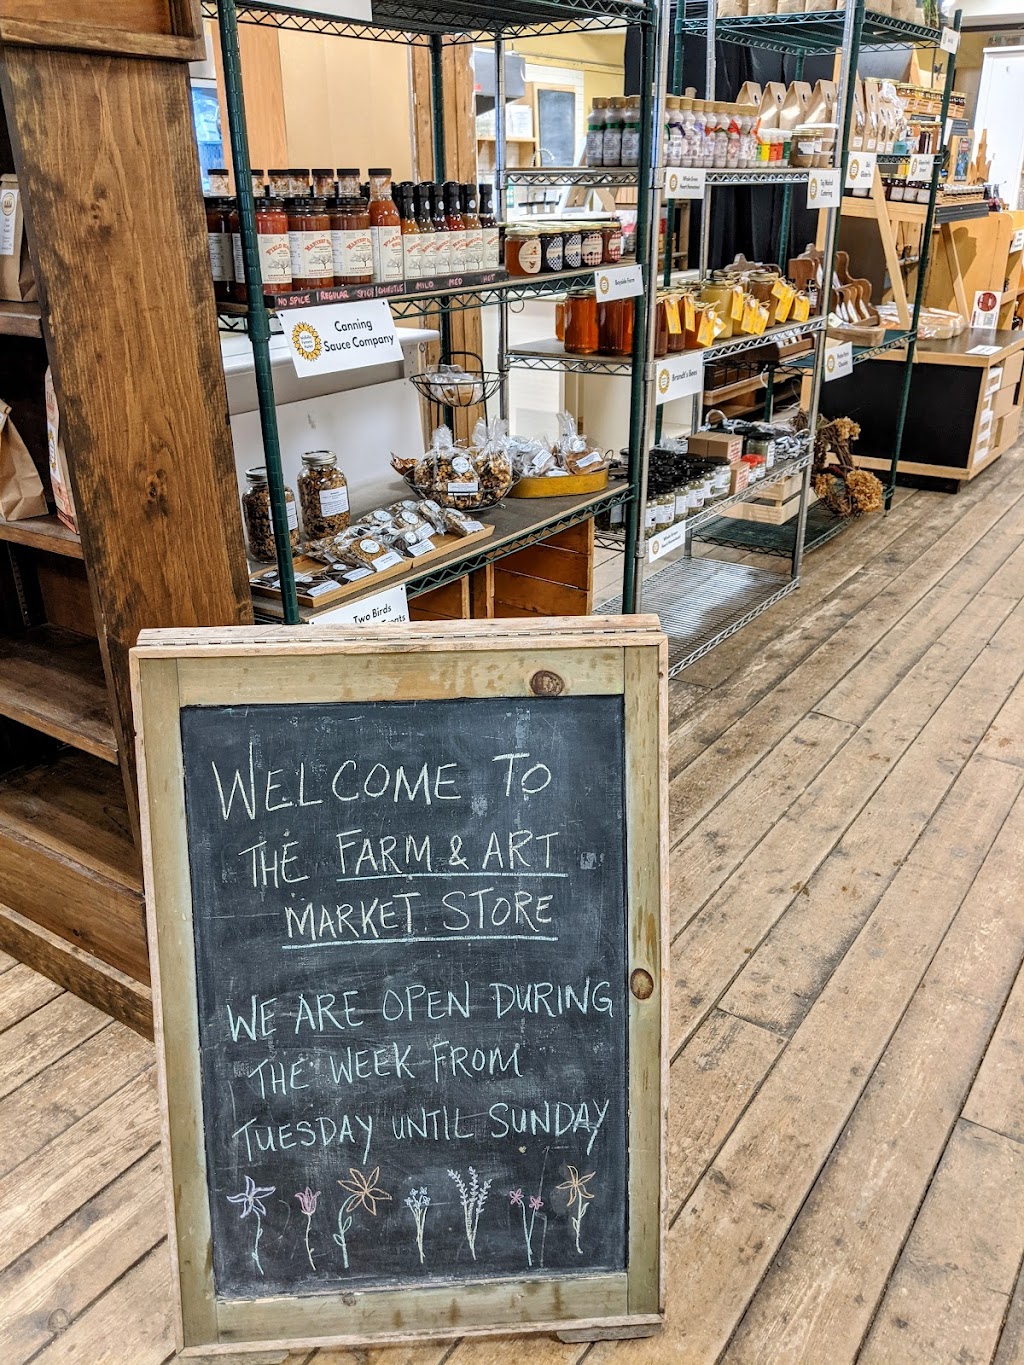 NO SPICE REGULAR SPICY CHIPOTLE MILD MED HOT
Canning
Sauce Company
Bayside Farm
Brandt's Bees
Taj Mahal
Catering
Two Birds
WELCOME TO
THE FARM & ART
MARKET STORE
WE ARE OPEN DURING
THE WEEK FROM
TUESDAY UNTIL SUNDAY